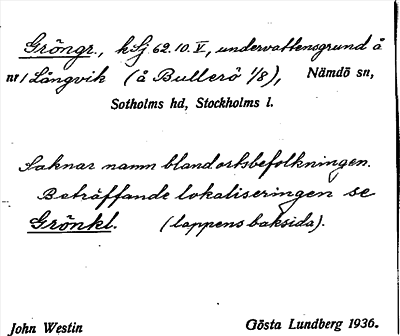 Gröngr., kSj 62.10.V, undervattensgrund å
nr 1 Långvik (å Bullerö 1/8), Nämdö sn,
Sotholms hd, Stockholms l.
Saknar namn bland ortsbefolkningen.
Beträffande lokaliseringen se
Grönkl. (lappens baksida).
John Westin Gösta Lundberg 1936.